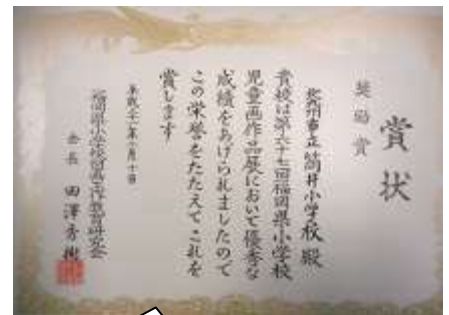 賞状
奨励賞
市立筒井小学校殿
貴校は第六十七回福岡県小学校
児童画作品展において優秀な
成績をあげられましたので
この栄誉をたたえてこれを
賞します
福岡県小学校図画工作教育研究会
会長 田澤秀樹